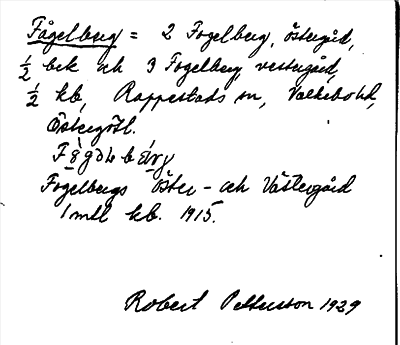 Fågelberg = 2 Fogelberg, östergård,
½ bek och 3 Fogelberg, vestergård,
½ kb, Rappestads sn, Valkebo hd,
Östergötl.
Fogelbergs Öster- och Västergård
1 mtl kb. 1915.
Robert Pettersson 1929